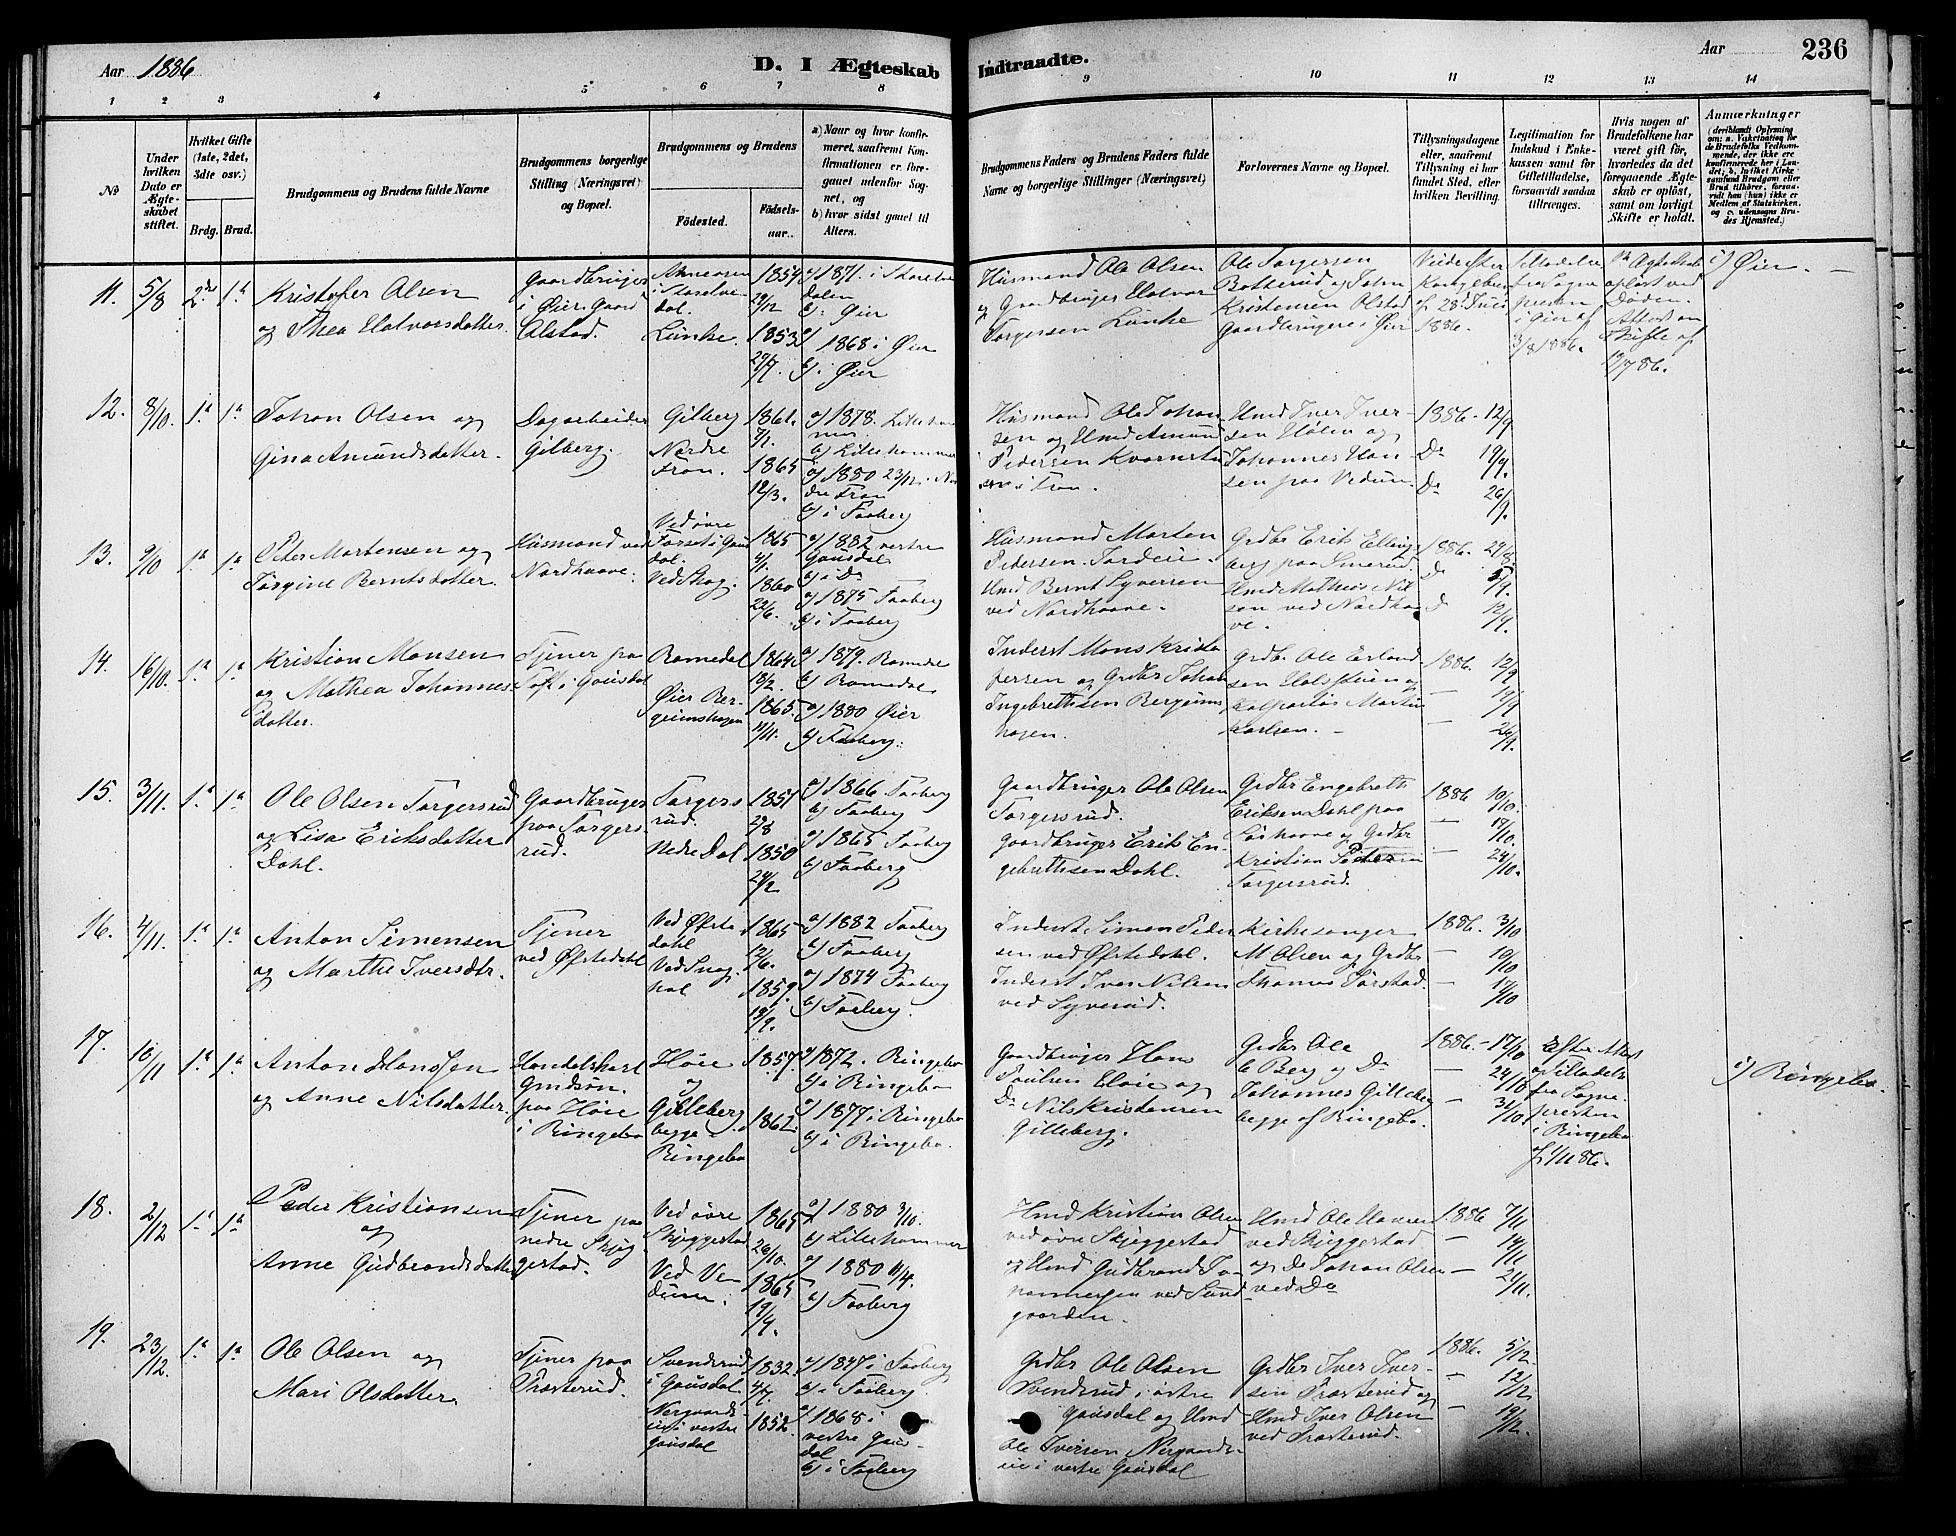 Aar 1886
D. I Ægteskab
Indtraadte.
Aar
236
1 2 3 4 5 6 7 8 9 10 11 12 13 14
№
Under hvilken Dato er Ægteskabet stiftet.
Hvilket Gifte (1ste, 2det, 3die osv.)
Brdg. Brud.
Brudgommens og Brudens fulde Navne
Brudgommens borgerlige Stilling (Næringsvei) og Bopæl.
Brudgommens og Brudens
Födested.
Födselsaar.
a) Naar og hvor konfirmeret, saafremt Konfirmationen er foregaaet udenfor Sognet, og
b) hvor sidst gaaet til Alters.
Brudgommens Faders og Brudens Faders fulde Navne og borgerlige Stillinger (Næringsvei)
Forlovernes Navne og Bopæl.
Tillysningsdagene eller, saafremt Tillysning ei har fundet Sted, efter hvilken Bevilling.
Legitimation for Indskud i Enkekassen samt for Giftetilladelse, forsaavidt saadan tiltrænges.
Hvis nogen af Brudefolkene har været gift før, hvorledes da det foregaaende Ægteskab er oplöst, samt om lovligt Skifte er holdt.
Anmærkninger
11. 5/8 2det 1ste
Kristofer Olsen
og Thea Halvorsdatter.
Gaardbruger
i Øier Gaard
Olstad.
Lunke.
1853
a) 1871 i
b) Øier
a) 1868 i Øier
b) i Øier
Husmand Ole Olsen
og Gaardbruger Halvor
Torgersen Lunke
Ole Torgersen
Botterud og John
Kristensen Olstad
Gaardbrugere i Øier
af 28de Juni
1886.
Tilladelse
fra Sogne
presten
i Øier af
3/8 1886.
opløst ved
Døden.
Attest om
Skifte af
12/7 86.
c) Øier.
12. 8/10 1ste 1ste
Johan Olsen og
Gina Amundsdatter.
Dagarbeider
Gilberg.
Gilberg
Nordre
Fron.
1861.
7/1.
1865
12/3.
a) 1878. Lillehammer
b) Lillehammer
a) 1880 23/12 i Nordre Fron
b) i Faaberg
Husmand Ole Johansen og Hmd Amund
Pedersen Kvernstu
i Fron.
Hmd Iver Iversen Holen og
Johannes Hansen paa Vedum.
1886. 12/9
Do 19/9.
Do 26/9.
13. 9/10 1ste 1ste
Peder Mortensen og
Torgine Berntsdatter.
Husmand ved
Nordhaave.
Ved øvre
Forset i Gausdal.
Ved Skog.
1865
4/1.
1860
22/6.
a) 1882 vestre
Gausdal
b) i Do
a) 1875 Faaberg
b) i Faaberg
Husmand Morten
Pedersen
Hmd Bernt Syversen
ved Nordhaave.
Grdbr Erik Ellingsberg paa Smerud.
Hmd Mathias Nilsen ved Nordhaave.
1886. 29/8.
Do 5/9.
Do 12/9.
14. 16/10. 1ste 1ste
Kristian Monsen
og Mathea Johannesdatter.
Tjener paa
Toft i Gausdal
Romedal
Øier Bergeimshagen
1864
18/2.
1865.
11/11.
a) 1879. Romedal
b) Romedal
a) 1880 Øier
b) Faaberg.
Inderst Mons Kristofersen og Grdbr Johan
Ingebrettsen Bergeimshagen.
Grdbr Ole Erlandsen Holsteien og
Kolportør Martin
Karlsen.
1886. 12/9
19/9
26/9.
15. 3/11. 1ste 1ste
Ole Olsen Torgersrud
og Lisa Eriksdatter
Dahl.
Gaardbruger
paa Torgersrud.
Torgersrud.
Nedre Dal
1851
29/8
1850
24/2
a) 1866 Faaberg
b) Faaberg
a) 1865 Faaberg
b) Faaberg
Gaardbruger Ole Olsen
Torgersrud.
Gaardbruger Erik Engebrettsen Dahl.
Grdbr Engebrett
Eriksen Dahl paa
Løshaave og Grdbr
Kristian Pedersen
Torgersrud.
1886 10/10.
17/10.
24/10.
16. 4/11. 1ste 1ste
Anton Simensen
og Marthe Iversdtr.
Tjener
ved Øfstedahl
Ved Øfstedahl
1865
12/6.
1859.
19/9.
a) 1882 Faaberg
b) Faaberg
a) 1874 Faaberg
b) Faaberg.
Inderst Simen Pedersen ved Øfstedahl.
Inderst Iver Nilsen
ved Syverud.
Kirkesanger
M Olsen og Grdbr
Thomas Jørstad.
1886. 3/10
10/10
17/10
17. 10/11 1ste 1ste
Anton Hanssen
og Anne Nilsdatter.
Handelskarl
Gmdsøn.
paa Høie
i Ringebo
Høie
og
Gilleberg
begge i
Ringebo
1857.
1862.
a) 1872. Ringebo
b) i Ringebo
a) 1877 i Ringebo
b) i Ringebo.
Gaardbruger Hans
Paulsen Høie og
Do Nils Kristensen
Gilleberg.
Grdbr Ole
E Berg og Do
Johannes Gilleberg
begge af Ringebo.
1886. 17/10
24/10
31/10.
Efter Attest
og Tilladelse
fra Sogne
presten
i Ringebo
af 1/11 86.
c) Ringebo.
18. 2/12 1ste 1ste
Peder Kristiansen
og
Anne Gudbrandsdatter
Tjener paa
nedre Skjeggestad.
Ved øvre
Skjeggestad
Ved Vedum.
1865
26/10.
1865
19/9.
a) 1880 3/10.
b) Lillehammer
a) 1880 11/4.
b) Faaberg
Hmd Kristian Olsen
ved øvre Skjeggestad
og Hmd Gudbrand Johannersen ved Sundgaarden.
Hmd Ole Hansen
ved Skjeggestad
og Do Johan Olsen
ved Do
1886 7/11
14/11
21/11.
19. 23/12. 1ste 1ste
Ole Olsen og
Mari Olsdatter.
Tjener paa
Prosterud.
Svendsrud
i Gausdal.
Nergaardseie i vestre
Gausdal
1832.
1852.
a) 1847 i Faaberg
b) i Faaberg.
a) 1868 i
vestre Gausdal
b) i Faaberg
Grdbr Ole Olsen
Svendsrud i østre
Gausdal og Hmd
Ole Iversen Nergaardseie i vestre Gausdal
Grdbr Iver Iversen Prosterud og
Hmd Iver Olsen
ved Prosterud.
1886. 5/12.
12/12
19/12.